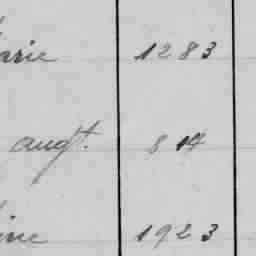 arie 1283
augt. 814
ine 1923